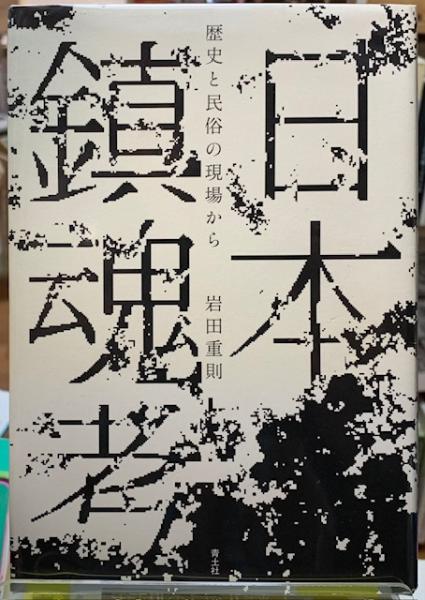 日本
鎮魂考
歴史と民俗の現場から
岩田重則
青土社